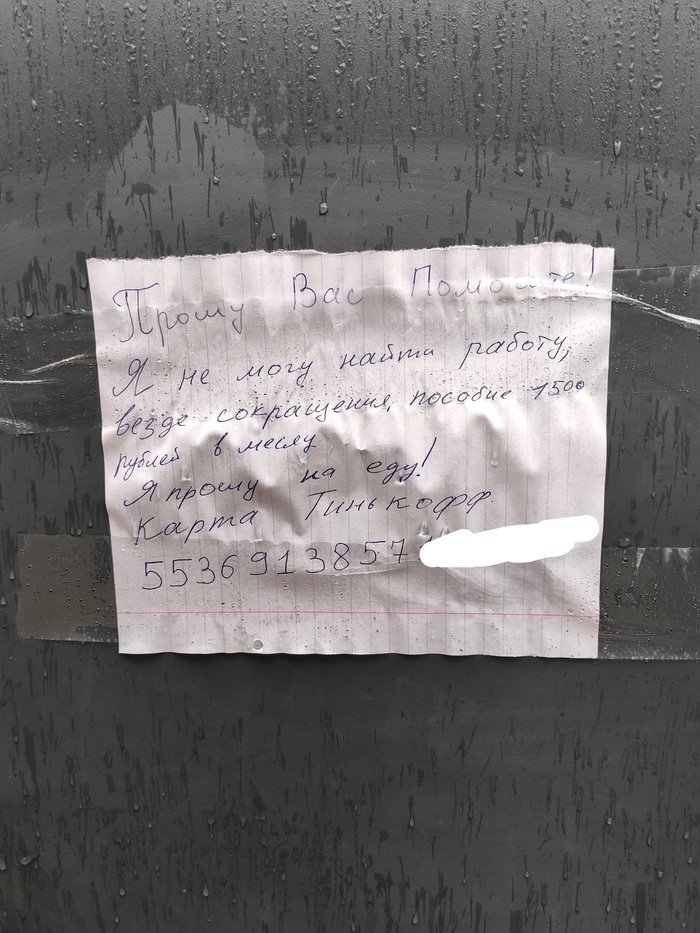 Прошу Вас Помогите!
Я не могу найти работу,
везде сокращения, пособие 1500
рублей в месяц
Я прошу на еду!
Карта Тинькофф
5536913857